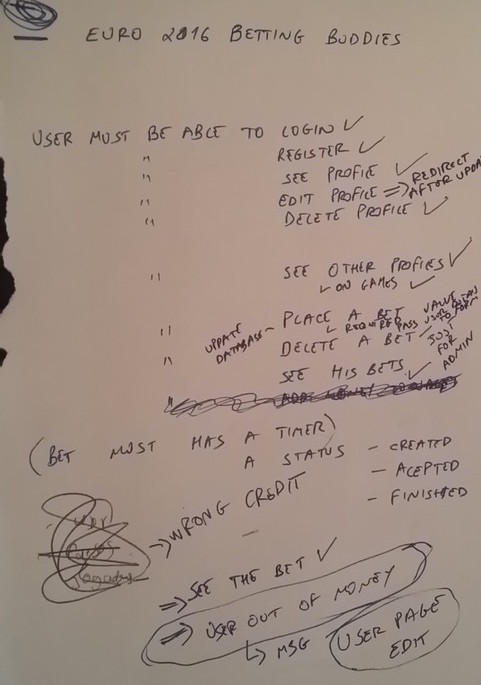 EURO 2016 BETTING BUDDIES
USER MUST BE ABLE TO LOGIN ✓
" REGISTER ✓
" SEE PROFILE ✓
" EDIT PROFILE => REDIRECT AFTER UPDA
" DELETE PROFILE ✓
" SEE OTHER PROFILES ✓
ON GAMES ✓
" UPDATE DATABASE – PLACE A BET
REQUIRED PASS USER VALUE TO FORM
" DELETE A BET ✓ JUST FOR ADMIN
SEE HIS BETS ✓
" ADD MONEY
(BET MUST HAS A TIMER)
A STATUS – CREATED
– ACEPTED
– FINISHED
-> WRONG CREDIT
=> SEE THE BET ✓
=> USER OUT OF MONEY
↳ MSG
USER PAGE
EDIT